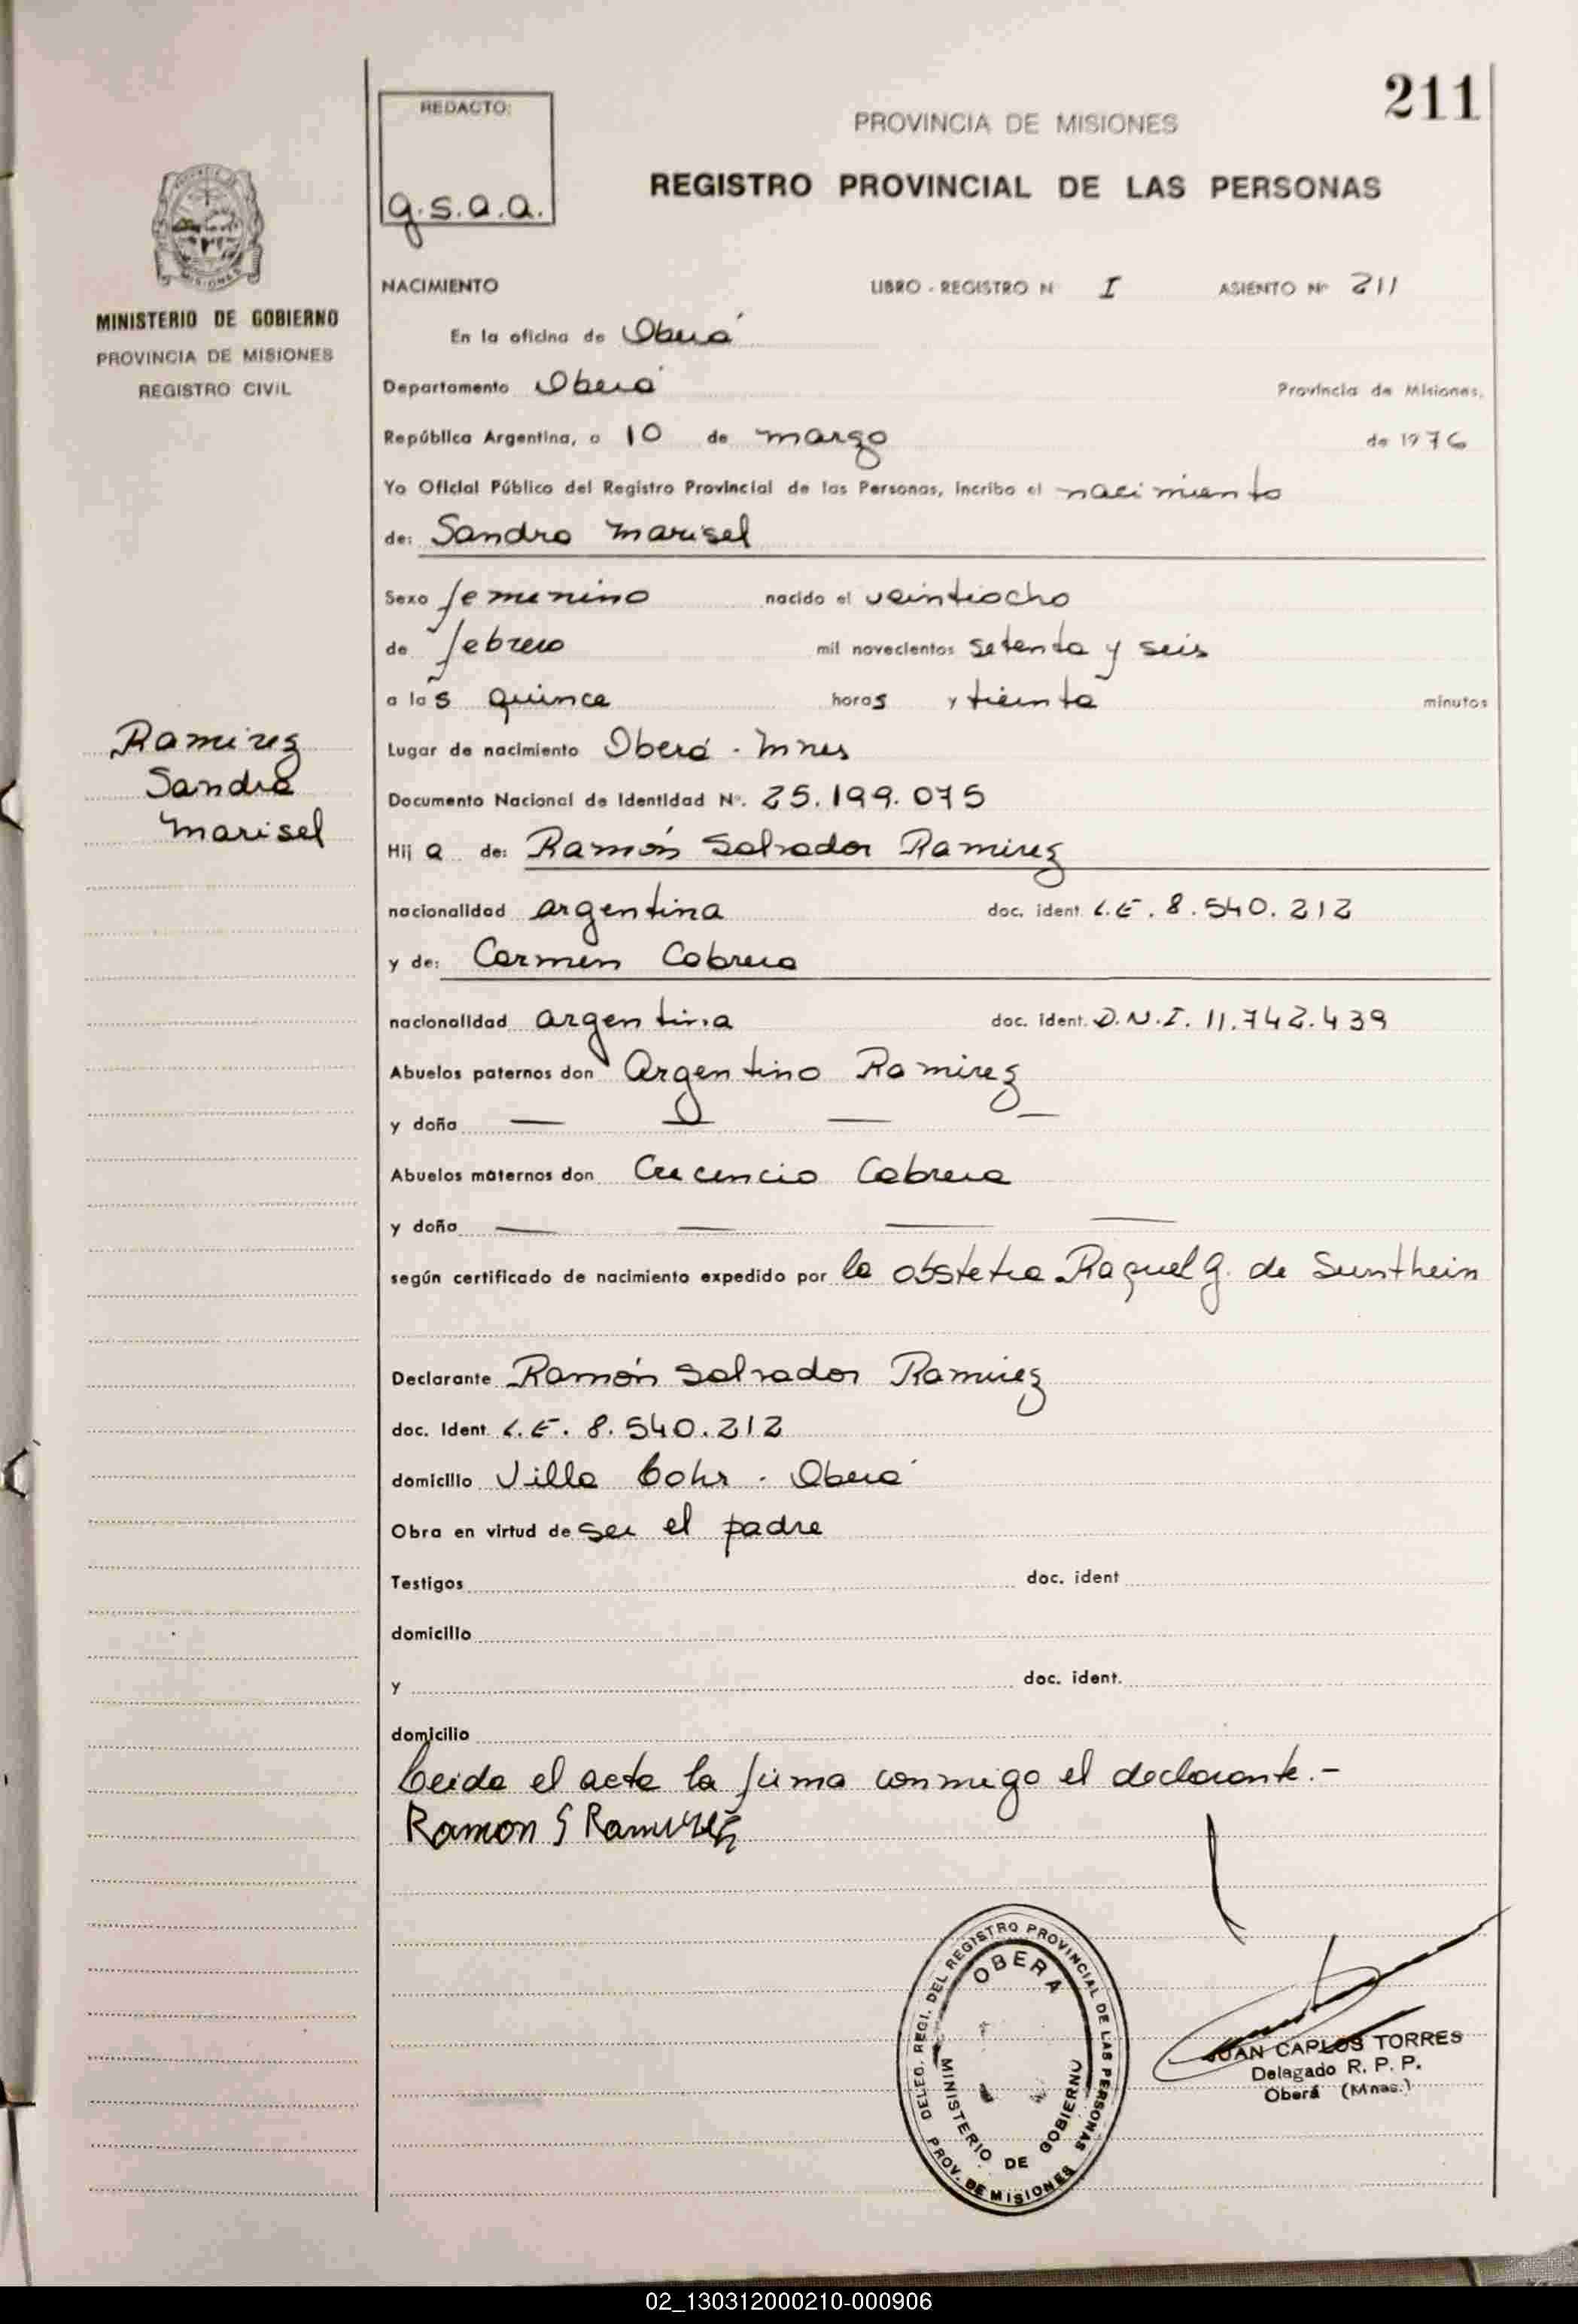 211
REDACTO:
g.s.a.a.
PROVINCIA DE MISIONES
REGISTRO PROVINCIAL DE LAS PERSONAS
MISIONES
MINISTERIO DE GOBIERNO
PROVINCIA DE MISIONES
REGISTRO CIVIL
NACIMIENTO LIBRO - REGISTRO N I ASIENTO Nº 211
En la oficina de Oberá
Departamento Oberá Provincia de Misiones,
República Argentina, a 10 de marzo de 1976
Yo Oficial Público del Registro Provincial de las Personas, incribo el nacimiento
de: Sandra Marisel
Sexo femenino nacido el veintiocho
de febrero mil novecientos setenta y seis
a las quince horas y treinta minutos
Ramirez
Sandra
Marisel
Lugar de nacimiento Oberá - Mnes
Documento Nacional de Identidad Nº. 25.199.075
Hij a de: Ramón Salvador Ramirez
nacionalidad argentina doc. ident. L.E. 8.540.212
y de: Carmen Cabrera
nacionalidad argentina doc. ident. D.N.I. 11.742.439
Abuelos paternos don Argentino Ramirez
y doña — — — —
Abuelos maternos don Crecencio Cabrera
y doña — — — —
según certificado de nacimiento expedido por la obstetra Raquel G. de Sunthein
Declarante Ramón Salvador Ramirez
doc. Ident. L.E. 8.540.212
domicilio Villa Oberá
Obra en virtud de ser el padre
Testigos doc. ident
domicilio
y doc. ident.
domicilio
Leida el acta la firma conmigo el declarante.-
Ramon S Ramirez
DELEG. REGI. DEL REGISTRO PROVINCIAL DE LAS PERSONAS
OBERA
MINISTERIO DE GOBIERNO
PROV. DE MISIONES
JUAN CARLOS TORRES
Delegado R. P. P.
Oberá (Mnes.)
02_130312000210-000906